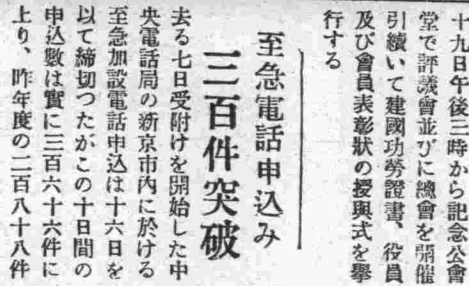 十九日午後三時から記念公會
堂で評議會並びに總會を開催
引續いて建國功勞證書、役員
及び會員表彰狀の授與式を擧
行する
至急電話申込み
三百件突破
去る七日受附けを開始した中
央電話局の新京市內に於ける
至急加設電話申込は十六日を
以て締切つたがこの十日間の
申込數は實に三百六十六件に
上り、昨年度の二百八十八件